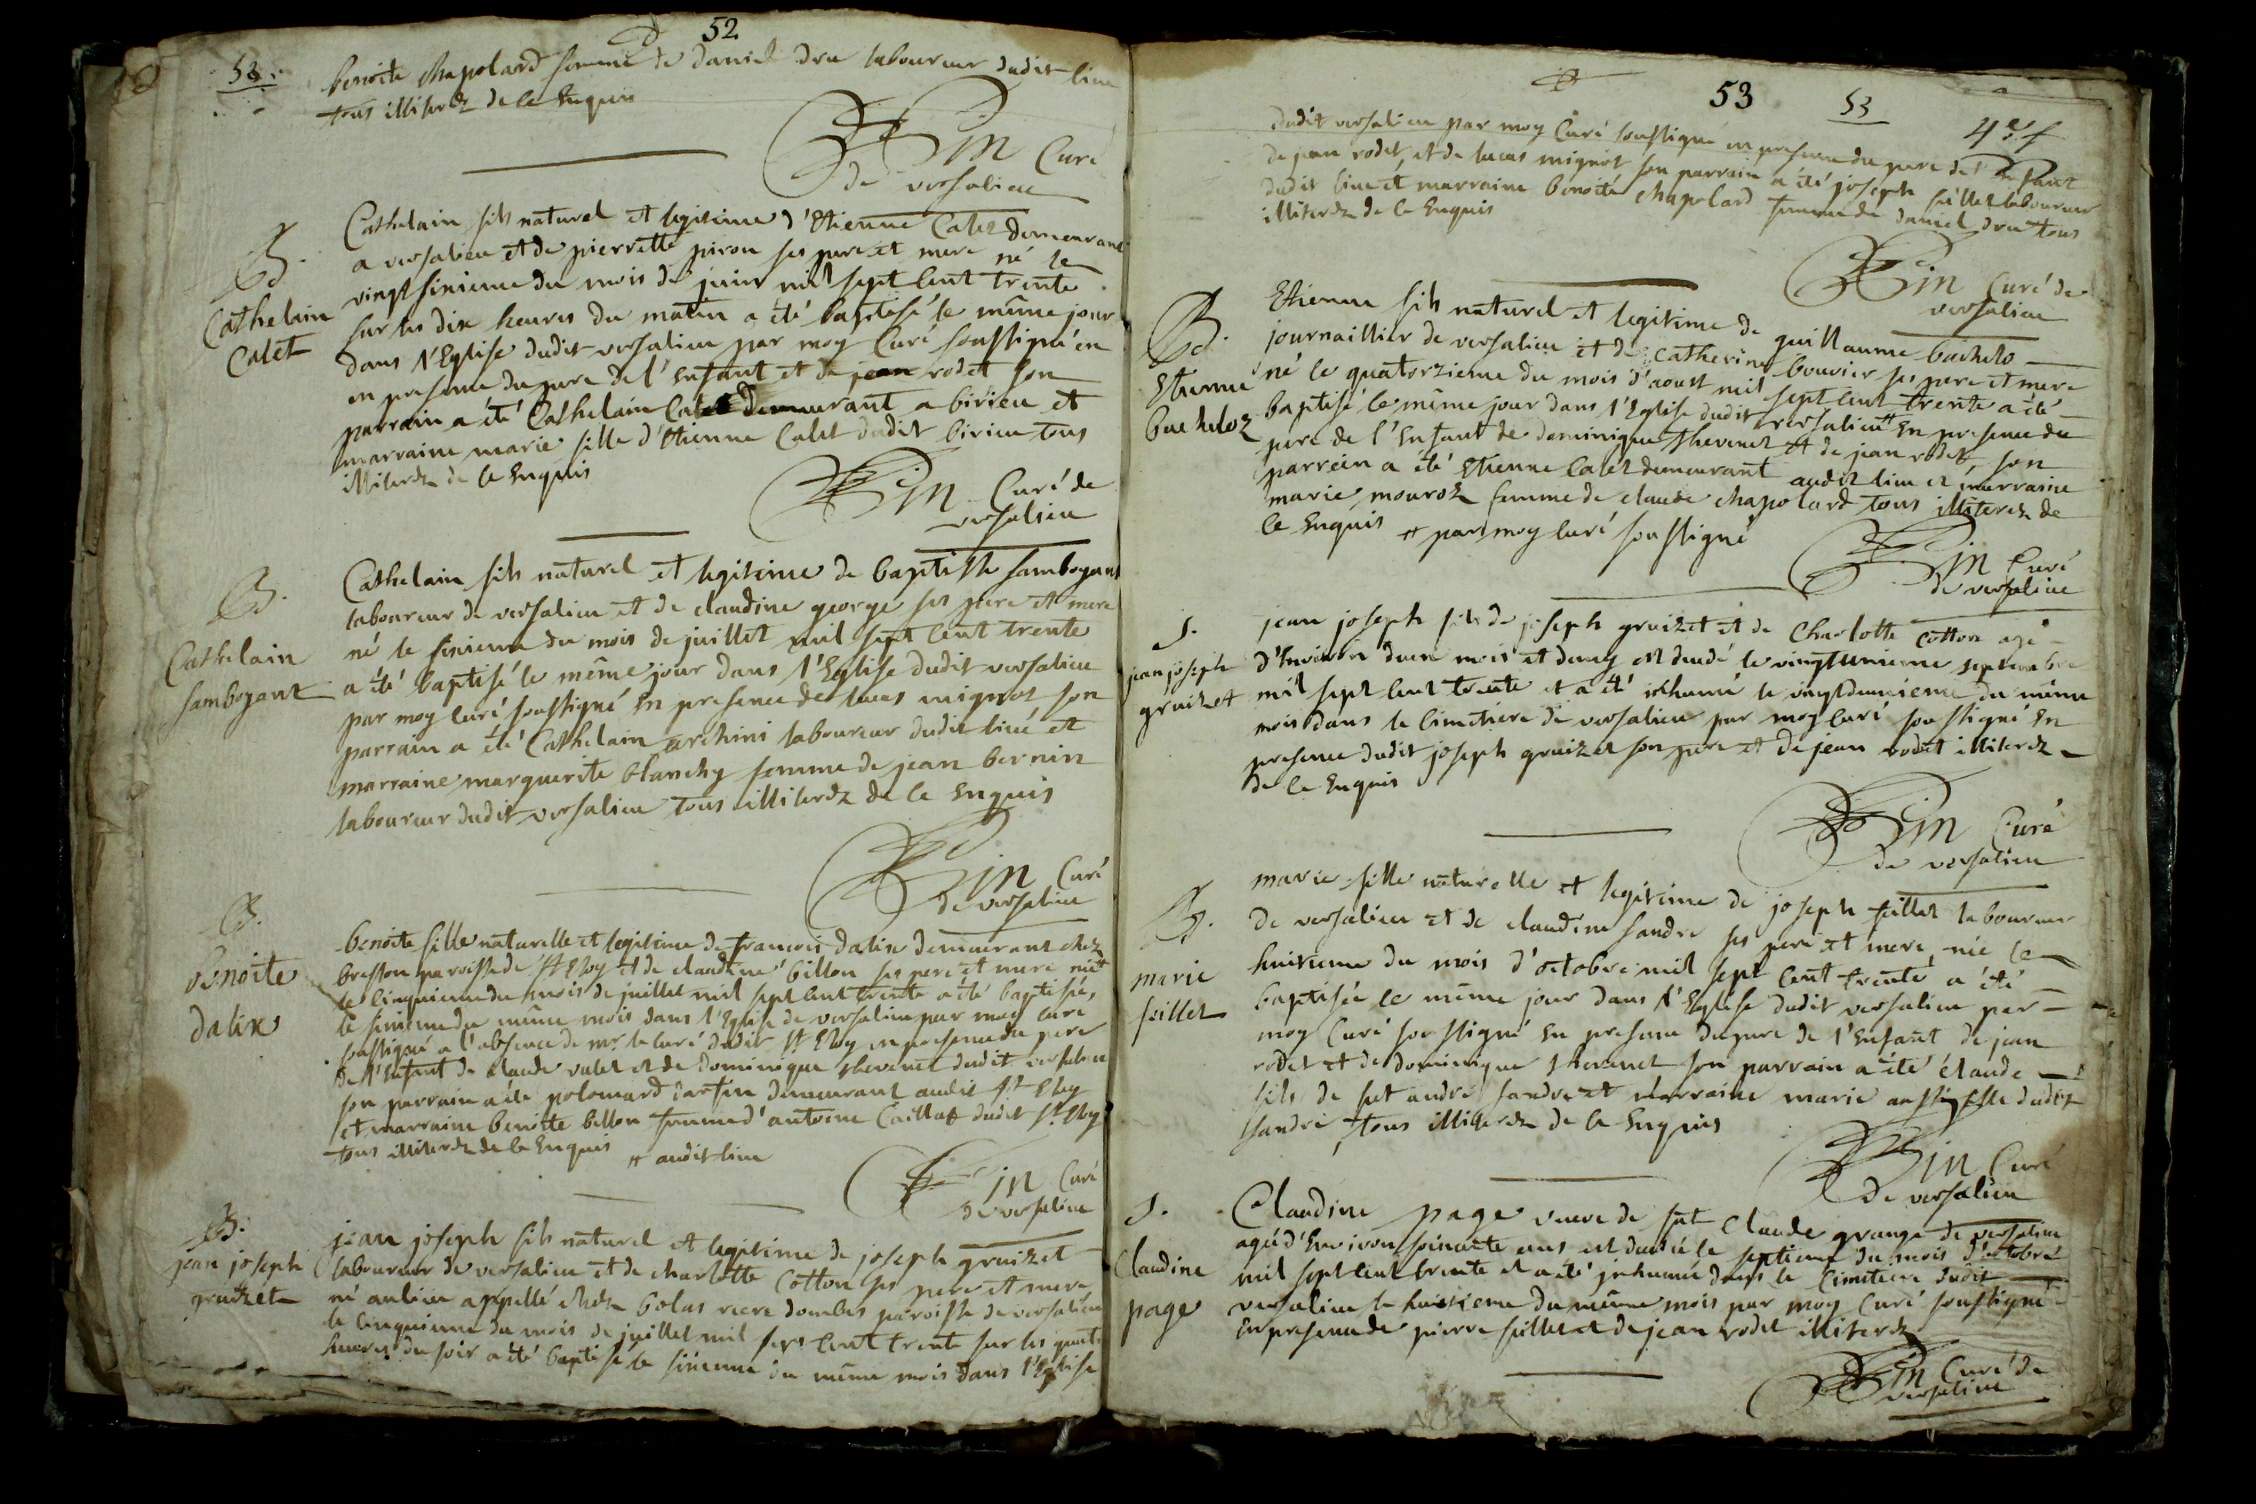 52
52
benoite chapolard femme de daniel dru laboureur dudit lieu
tous illiterez de ce Enquis
Curé
de versalieu
B.
Cathelain
Calet
Cathelain fils naturel et legitime d'Etienne Calet demeurant
a versalieu et de pierrette piron ses pere et mere né le
vingt sixieme du mois de juin mil sept cent trente
sur les dix heures du matin a été baptisé le même jour
dans l'Eglise dudit versalieu par moy Curé soussigné en
en presence du pere de l'Enfant et de jean rodet son
parrain a été Cathelain Calet demeurant a birieu et
marraine marie fille d'Etienne Calet dudit birieu tous
illiterez de ce Enquis
Curé de
versalieu
B.
Cathelain
samboyant
Cathelain fils naturel et legitime de baptiste samboyant
laboureur de versalieu et de claudine george ses pere et mere
né le sixieme du mois de juillet mil sept cent trente
a été baptisé le même jour dans l'Eglise dudit versalieu
par moy curé soussigné en presence de lucas mignot son
parrain a été Cathelain archini laboureur dudit lieu et
marraine marguerite blanchy femme de jean bernin
laboureur dudit versalieu tous illiterez de ce Enquis
Curé
de versalieu
B.
benoite
dalix
benoite fille naturelle et legitime de francois dalix demeurant chez
bresson paroisse de st Eloy et de claudine billon ses pere et mere née
le cinquieme du mois de juillet mil sept cent trente a été baptisée
le sixieme du même mois dans l'Eglise de versalieu par moy curé
soussigné a l'absence de mr le curé dudit st Eloy en presence du pere
de l'Enfant de claude valet et de dominique thevenet dudit versalieu
son parrain a été polomard demeurant audit st Eloy
et marraine benoite billon femme d'antoine Caillat dudit st Eloy
tous illiterez de ce Enquis # audit lieu
Curé
de versalieu
B.
jean joseph
gruizet
jean joseph fils naturel et legitime de joseph gruizet
laboureur de versalieu et de charlotte Cotton ses pere et mere
né au lieu appellé chez bolas riere dombes paroisse de versalieu
le cinquieme du mois de juillet mil sept cent trente sur les quatre
heures du soir a été baptisé le sixieme du même mois dans l'Eglise
53
53
dudit versalieu par moy Curé soussigné en presence du pere de l'Enfant
de jean rodet et de lucas mignot son parrain a été joseph feillet laboureur
dudit lieu et marraine benoite chapolard femme de daniel dru tous
illiterez de ce Enquis
Curé de
versalieu
B.
Etienne
bacheloz
Etienne fils naturel et legitime de guillaume bachelo
journaillier de versalieu et de catherine bouvier ses pere et mere
né le quatorzieme du mois d'aoust mil sept cent trente a été
baptisé le même jour dans l'Eglise dudit versalieu # En presence du
pere de l'Enfant de dominique thevenet et de jean rodet, son
parrein a été Etienne Calet demeurant audit lieu et marraine
marie mouroz femme de claude chapolard tous illiterez de
ce Enquis # par moy curé soussigné
Curé
de versalieu
S.
jean joseph
gruizet
jean joseph fils de joseph gruizet et de Charlotte Cotton agé
d'Environ deux mois et demy est decedé le vingtunieme septembre
mil sept cent trente et a été inhumé le vingtdeuxieme du même
mois dans le Cimetiere de versalieu par moy curé soussigné En
presence dudit joseph gruizet son pere et de jean rodet illiterez
de ce Enquis
Curé
de versalieu
B.
marie
feillet
marie fille naturelle et legitime de joseph feillet laboureur
de versalieu et de claudine sandre ses pere et mere, née le
huitieme du mois d'octobre mil sept cent trente a été
baptisée le même jour dans l'Eglise dudit versalieu par
moy Curé soussigné En presence du pere de l'Enfant de jean
rodet et de dominique thevenet son parrain a été claude
fils de fut andré sandre et marraine marie aussi fille dudit
sandre, tous illiterez de ce Enquis
Curé
de versalieu
S.
Claudine
page
Claudine page veuve de fut Claude grange de versalieu
agée d'Environ soixante ans est decedée le septieme du mois d'octobre
mil sept cent trente et a été inhumée dans le Cimetiere dudit
versalieu le huitieme du même mois par moy Curé soussigné
En presence de pierre feillet et de jean rodet illiterez
Curé de
versalieu